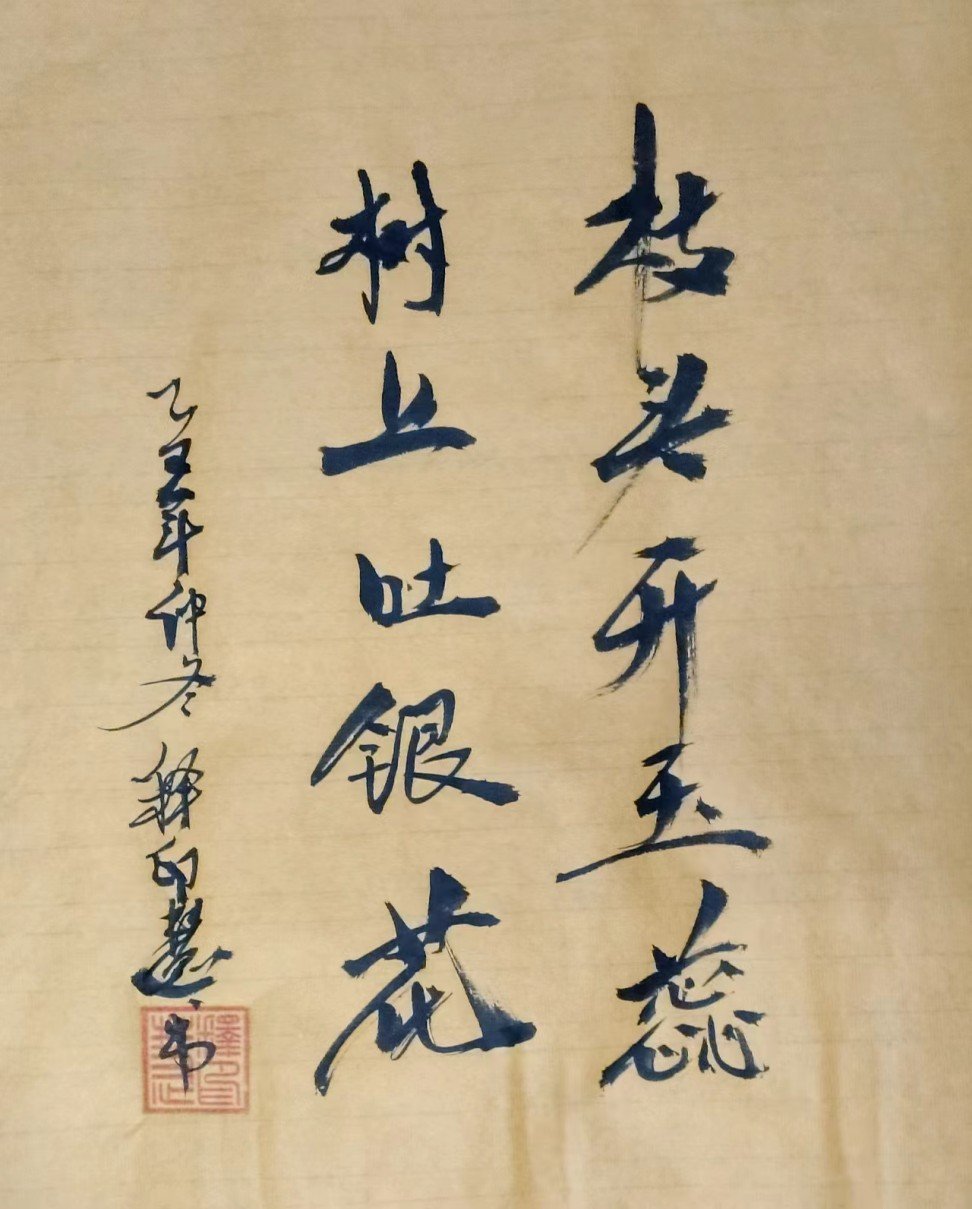 枝头开玉蕊
树上吐银花
乙王年仲冬 释印慧书